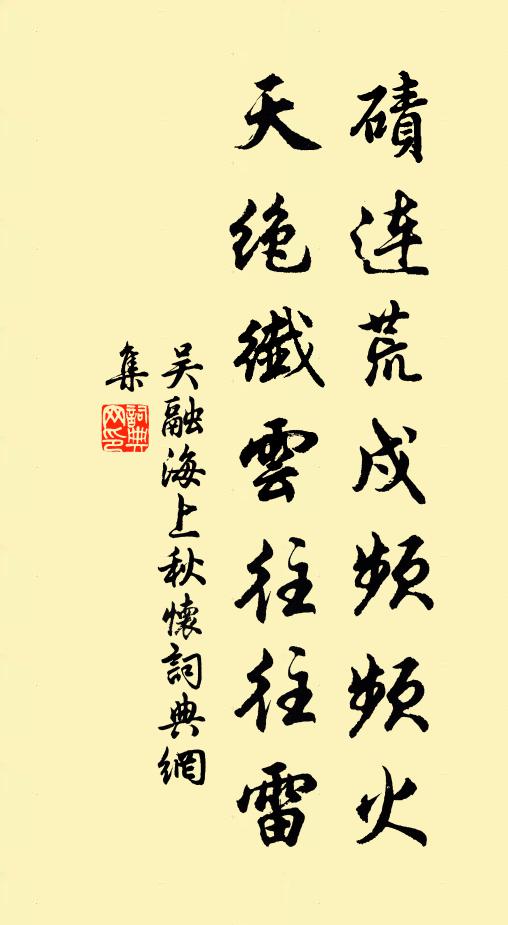 磧連荒戍頻頻火
天絶纖雲往往雷
吴融海上秋懷詞典網
集
詞典
网印